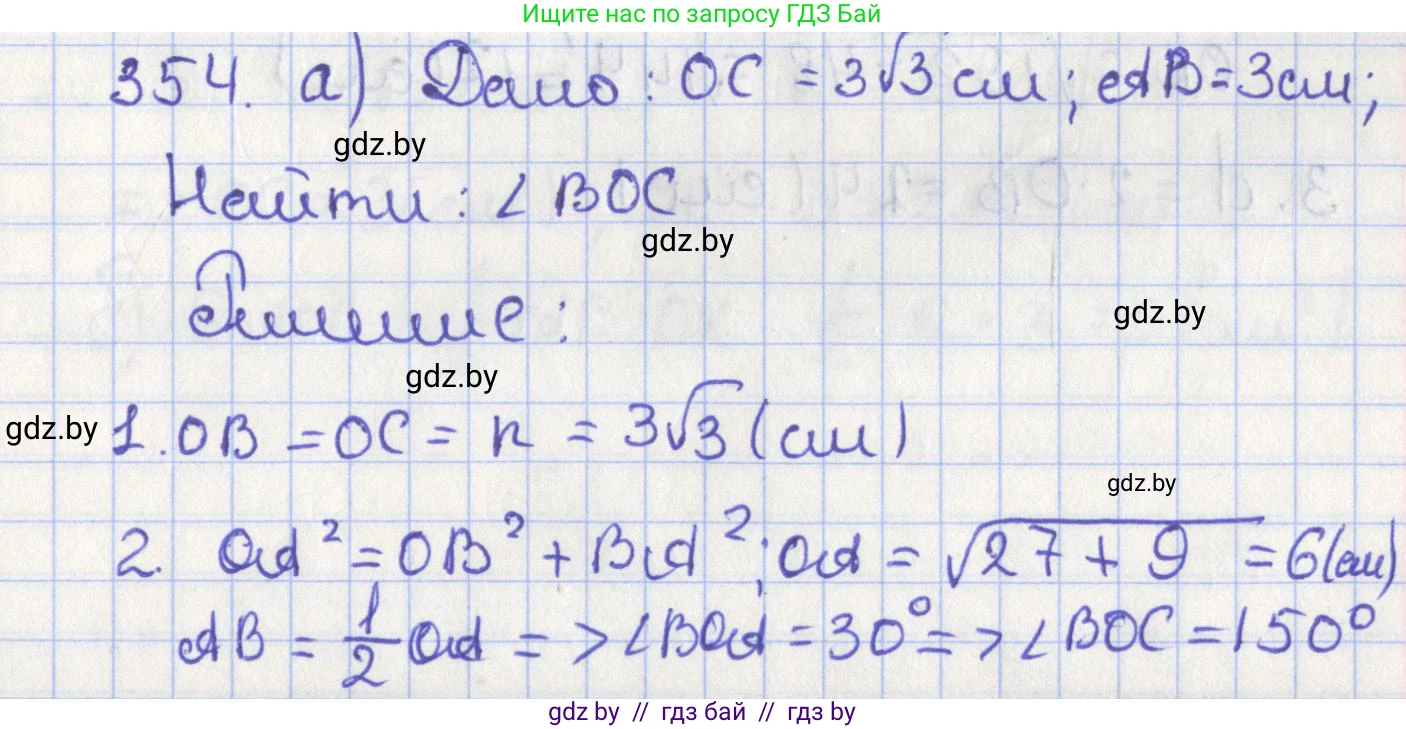 Ищите нас по запросу ГДЗ Бай
354. а) Дано: OC = 3√3 см; AB = 3 см;
gdz.by
Найти: ∠ BOC
gdz.by
Решение:
gdz.by
gdz.by
gdz.by
1. OB = OC = r = 3√3 (см)
gdz.by
2. OA² = OB² + BA²; OA = √27 + 9 = 6 (см)
AB = 1/2 OA => ∠BOA = 30° => ∠BOC = 150°
gdz by // гдз бай // гдз by